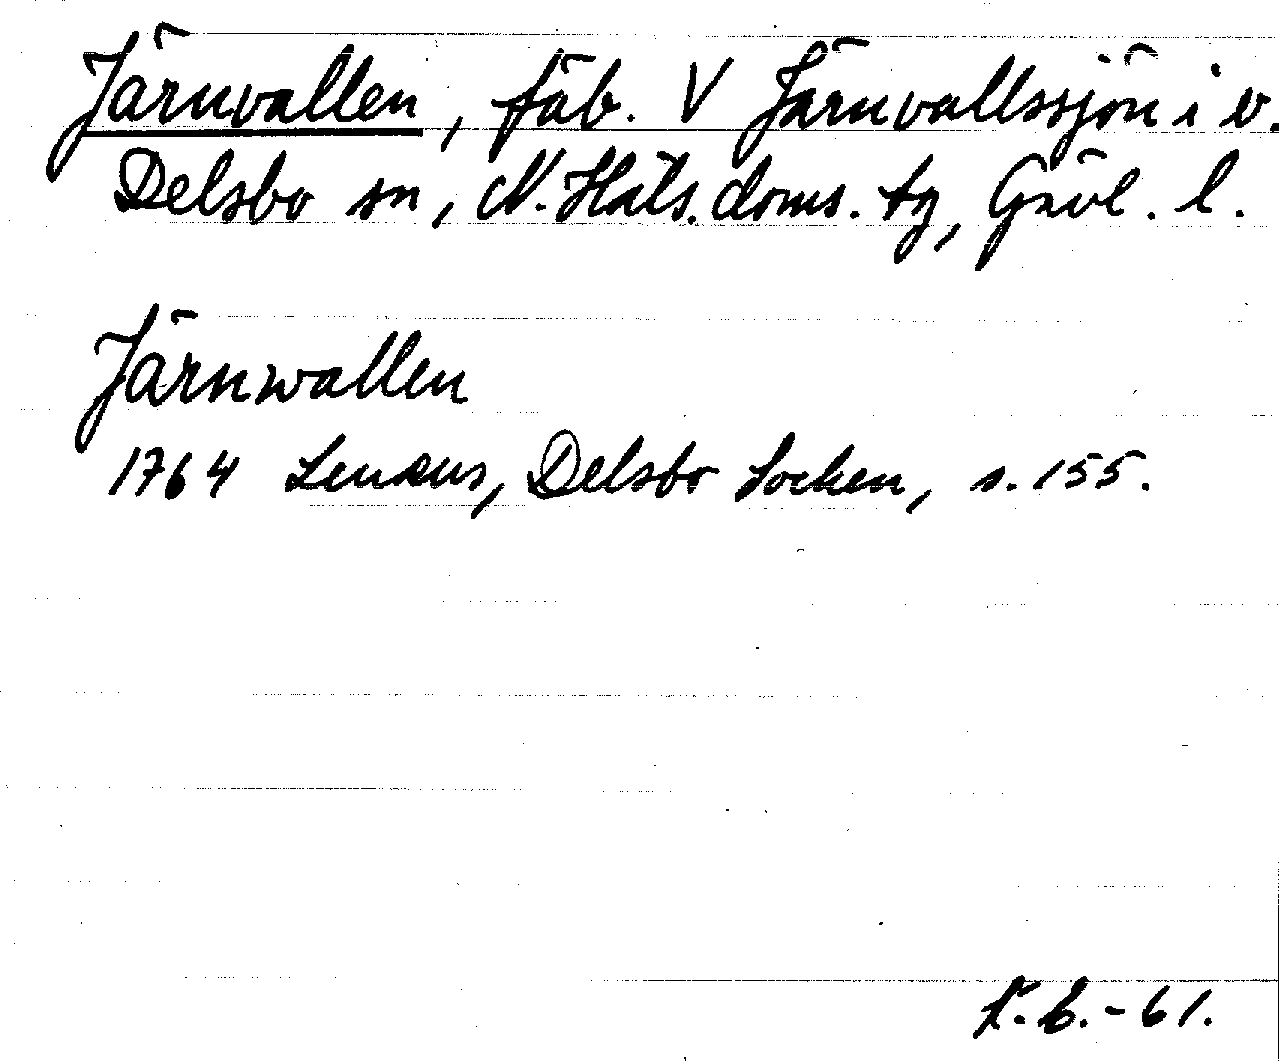 Järnvallen, fäb. V Järnvallssjön i v.
Delsbo sn, N. Häls. doms. tg, Gävl. l.
Järnwallen
1764 Lenæus, Delsbo Socken, s. 155.
-61.